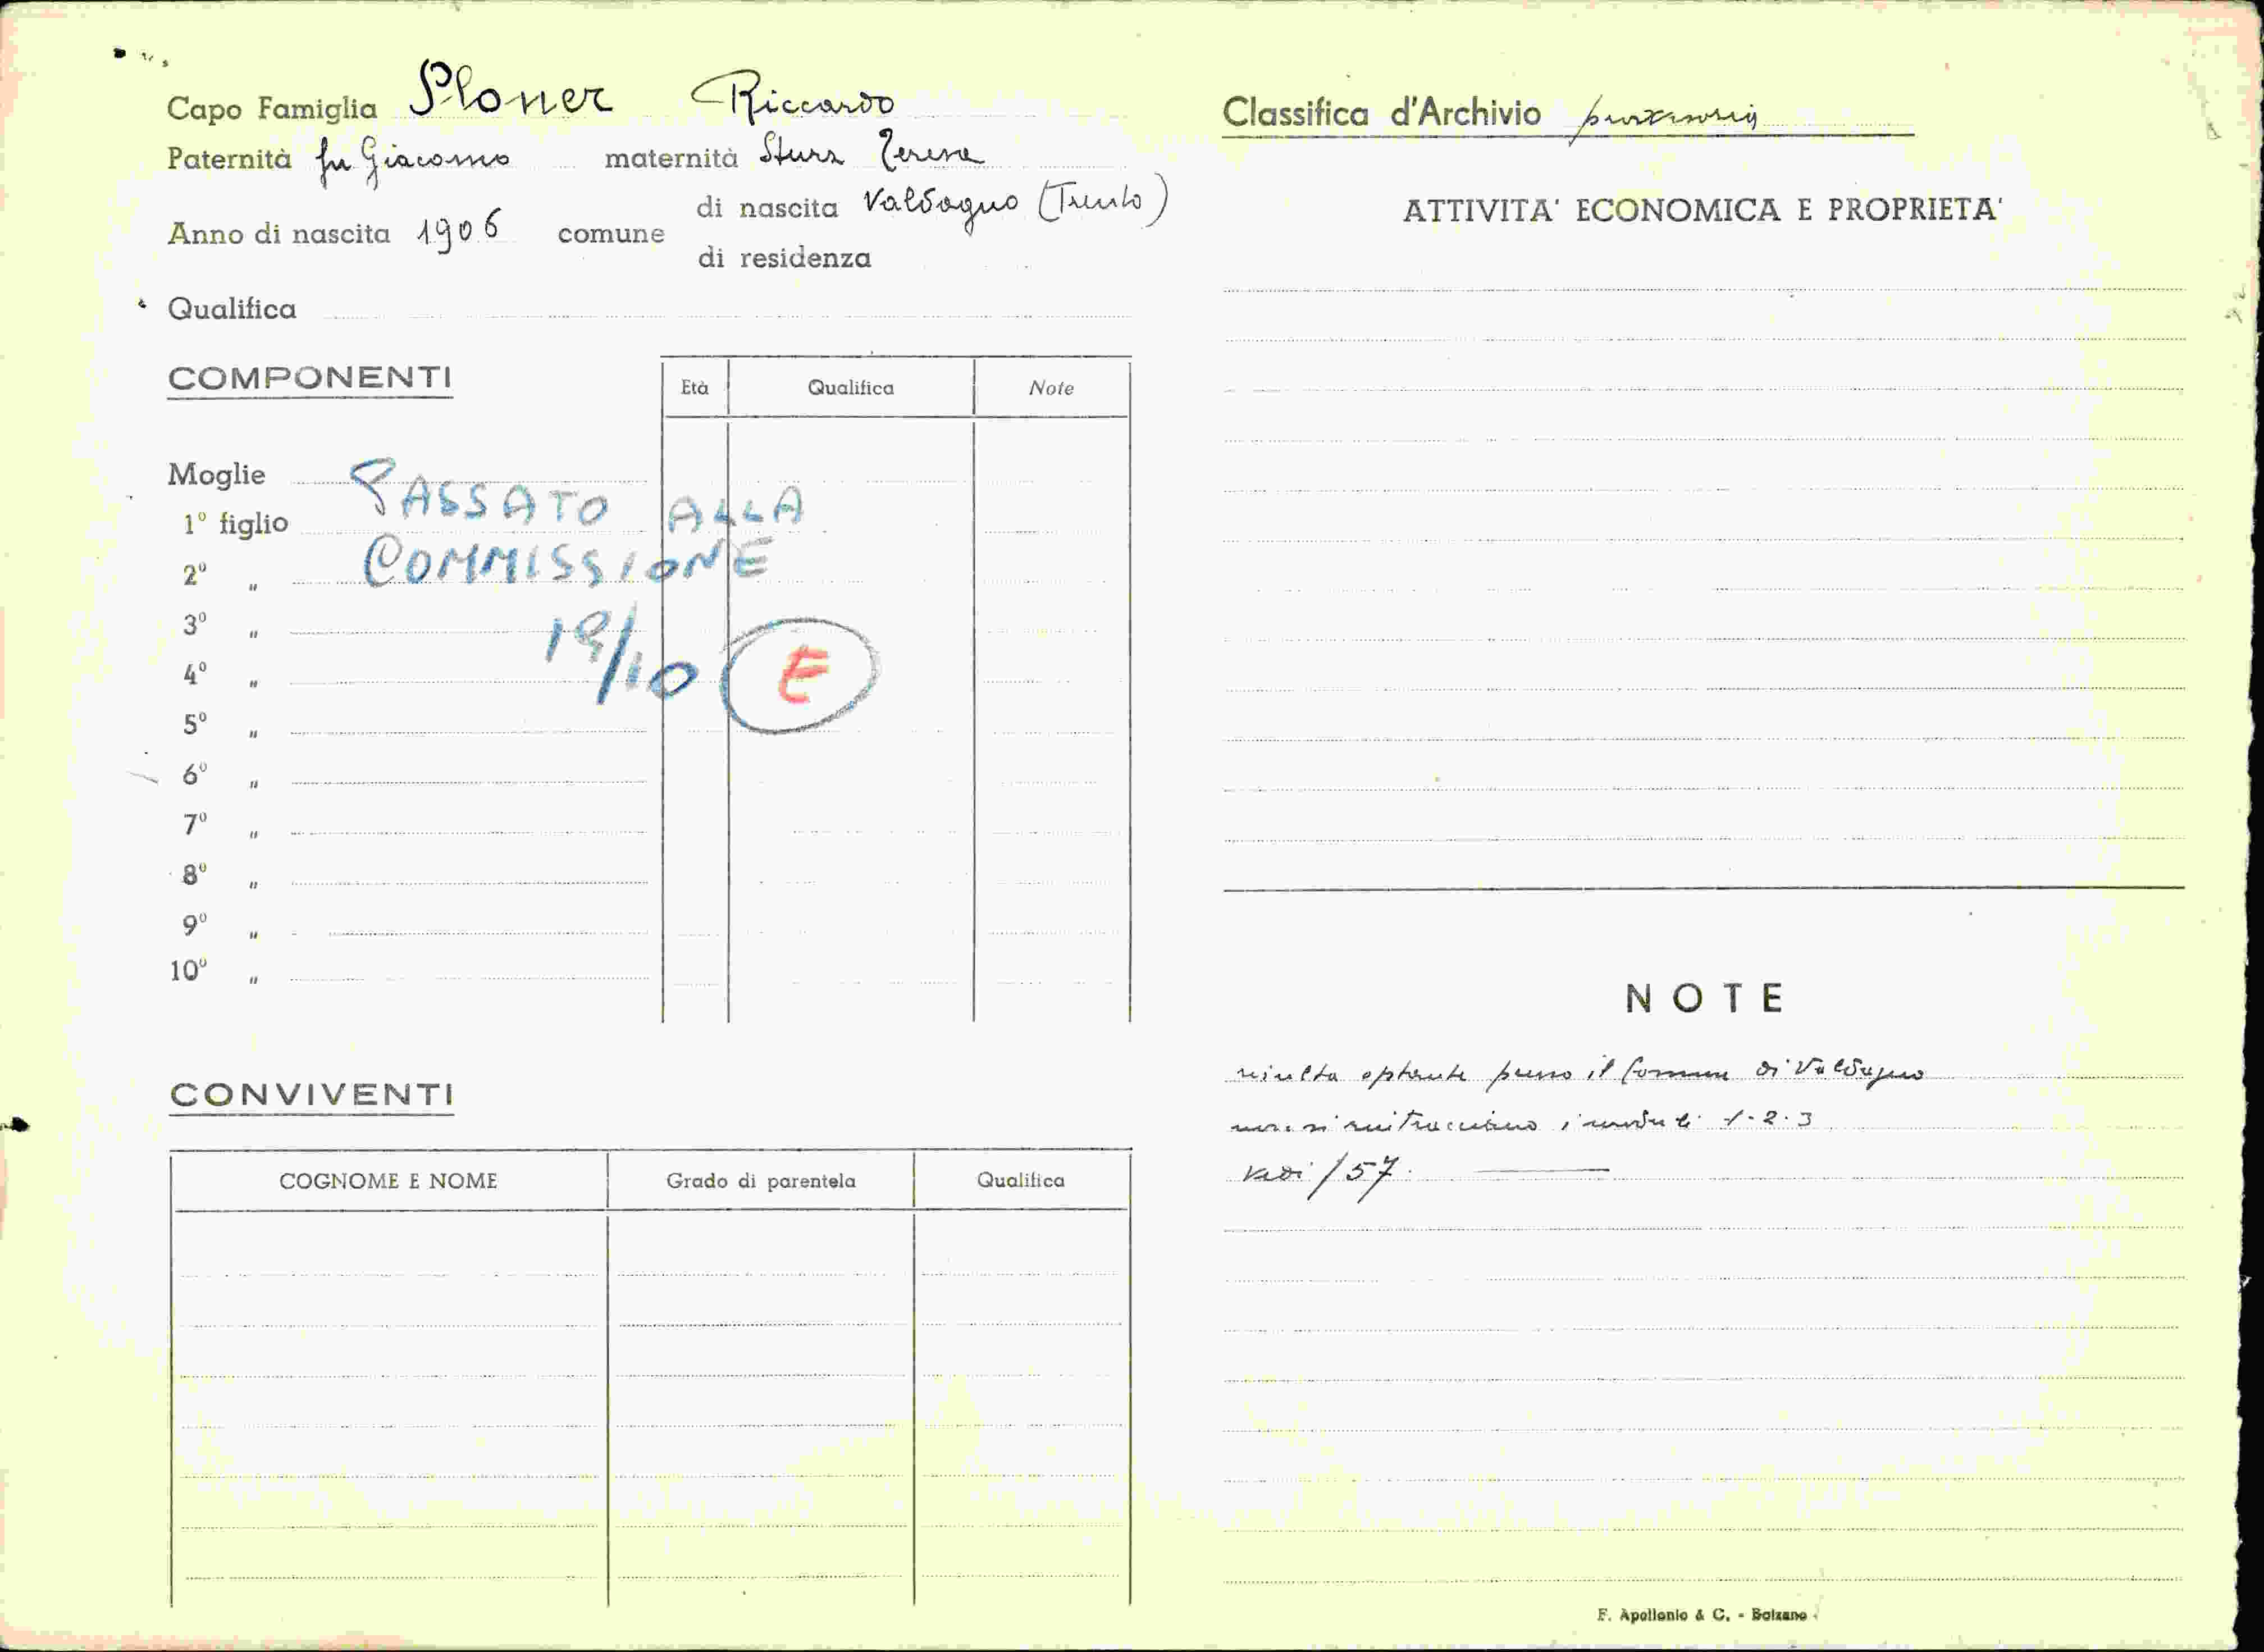 Capo Famiglia Ploner Riccardo
Paternità fu Giacomo maternità Sturz Teresa
Anno di nascita 1906 comune di nascita Valdagno (Trento)
di residenza
Qualifica
COMPONENTI
Età Qualifica Note
Moglie
1º figlio
2º "
3º "
4º "
5º "
6º "
7º "
8º "
9º "
10º "
PASSATO ALLA
COMMISSIONE
19/10 E
CONVIVENTI
COGNOME E NOME Grado di parentela Qualifica
Classifica d'Archivio
ATTIVITA' ECONOMICA E PROPRIETA'
NOTE
risulta optante presso il Comune di Valdagno
non si rintracciano i moduli 1-2-3
vedi /57.
F. Apollonio & C. - Bolzano